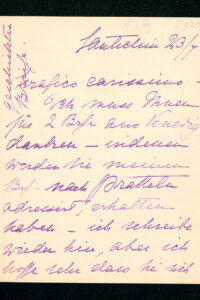 129
Santichin 23/7
Grafico carissimo –
Ich muss Ihnen
für 2 Bfe aus Venedig
danken – indessen
werden Sie meinen
Bf – nach Pratteln
adressirt, erhalten
haben – ich schreibe
wieder hin, aber ich
hoffe sehr dass Sie sich